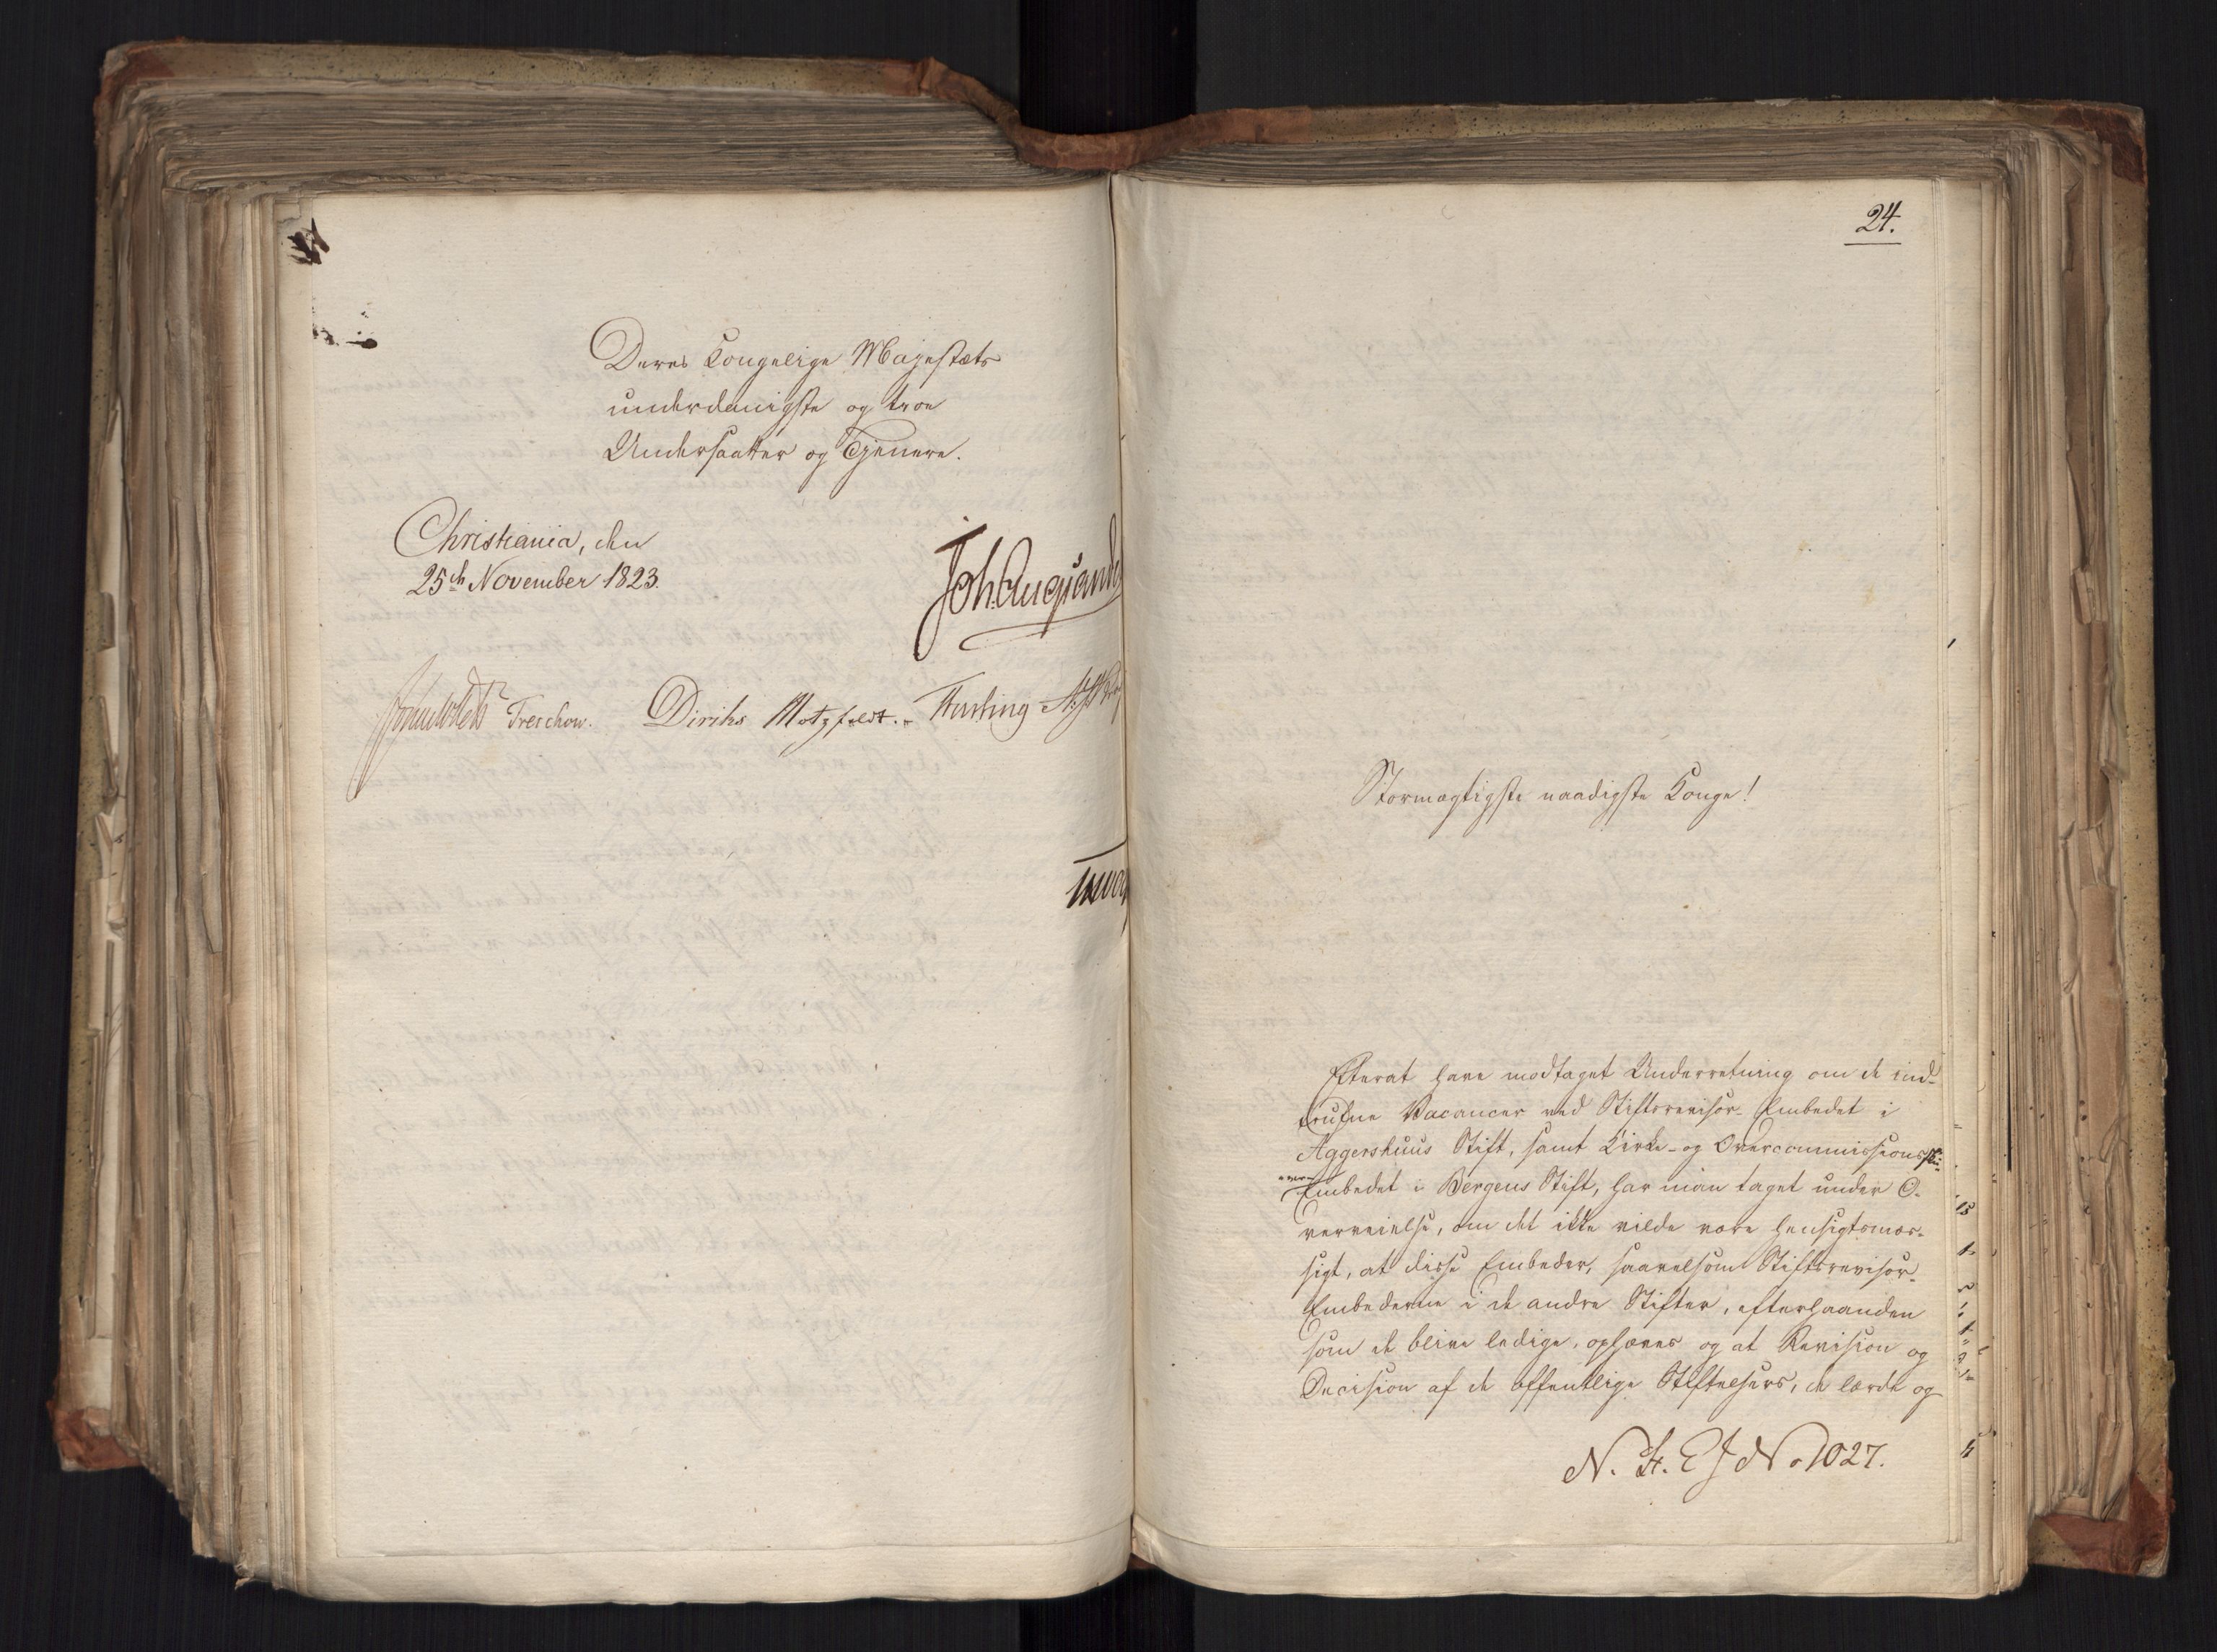 Deres Kongelige Majestæts
underdanigste og troe
Undersaatter og Tjenere.
Christiania, den
25de November 1823.
Joh. Aug. Sande
Sommerhielm Treschow. Diriks Motzfeldt. Fasting
24.
Stormægtigste naadigste Konge!
Efterat have modtaget Underretning om de ind-
trufne Vacancer ved Stiftsrevisor-Embedet i
Aggershuus Stift, samt Kirke- og Overcommissionsskri-
ver-Embedet i Bergens Stift, har man taget under O-
verveielse, om det ikke vilde være hensigtsmæs-
sigt, at disse Embeder, saavelsom Stiftsrevisor-
Embederne i de andre Stifter, efterhaanden
som de blive ledige, ophæves og at Revision og
Decision af de offentlige Stiftelsers, de lærde og
N. H. E J No 1027.